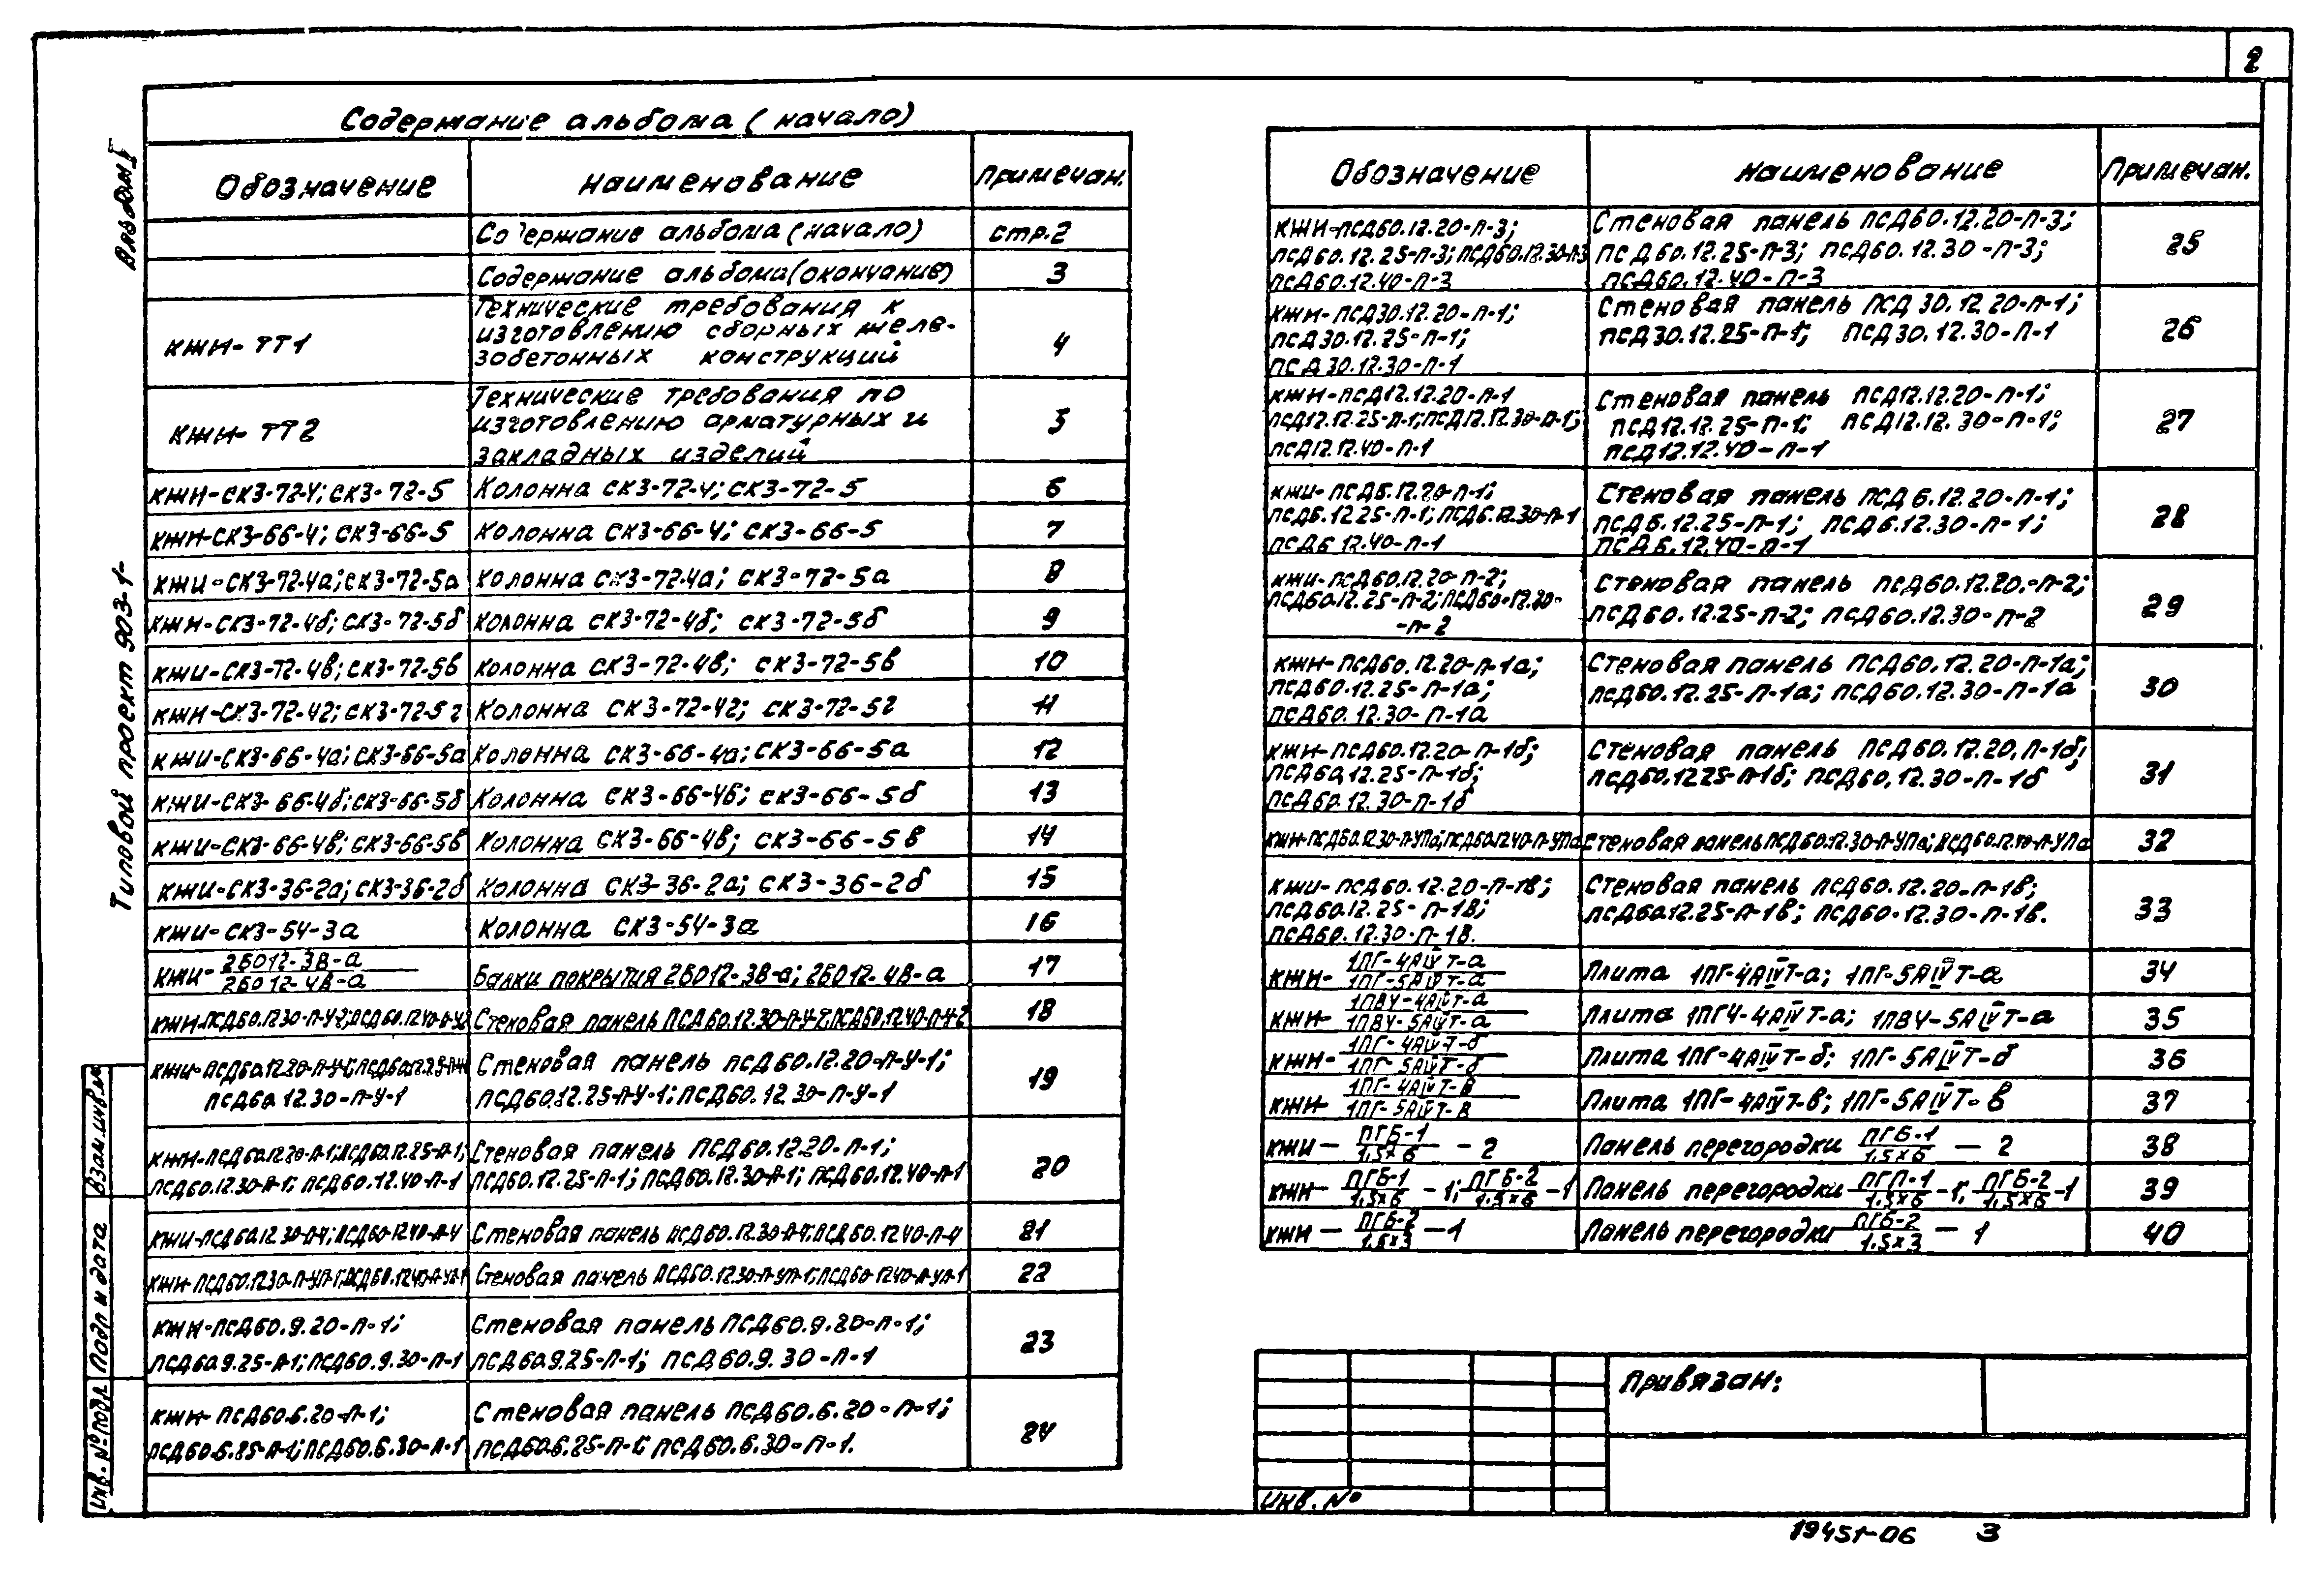 2
Содержание альбома (начало)
Обозначение Наименование Примечан.
Содержание альбома (начало) стр.2
Содержание альбома (окончание) 3
Технические требования к
изготовлению сборных желе-
КЖИ-ТТ1 4
зобетонных конструкций
Технические требования по
изготовлению арматурных и
КЖИ-ТТ2 5
закладных изделий
КЖИ-СК3-72-4; СК3-72-5 Колонна СК3-72-4; СК3-72-5 6
КЖИ-СК3-66-4; СК3-66-5 Колонна СК3-66-4; СК3-66-5 7
КЖИ-СК3-72-4а; СК3-72-5а Колонна СК3-72-4а; СК3-72-5а 8
КЖИ-СК3-72-4б; СК3-72-5б Колонна СК3-72-4б; СК3-72-5б 9
КЖИ-СК3-72-4в; СК3-72-5в Колонна СК3-72-4в; СК3-72-5в 10
КЖИ-СК3-72-4г; СК3-72-5г Колонна СК3-72-4г; СК3-72-5г 11
КЖИ-СК3-66-4а; СК3-66-5а Колонна СК3-66-4а; СК3-66-5а 12
КЖИ-СК3-66-4б; СК3-66-5б Колонна СК3-66-4б; СК3-66-5б 13
КЖИ-СК3-66-4в; СК3-66-5в Колонна СК3-66-4в; СК3-66-5в 14
КЖИ-СК3-36-2а; СК3-36-2б Колонна СК3-36-2а; СК3-36-2б 15
КЖИ-СК3-54-3а Колонна СК3-54-3а 16
КЖИ- 2БО12-3В-а / 2БО12-4В-а Балки покрытия 2БО12-3В-а; 2БО12-4В-а 17
Стеновая панель 18
Стеновая панель ПСД60.12.20-П-У-1;
ПСД60.12.30-П-У-1 ПСД60.12.25-П-У-1; ПСД60.12.30-П-У-1 19
КЖИ-ПСД60.12.20-П-1; ПСД60.12.25-П-1; Стеновая панель ПСД60.12.20-П-1;
ПСД60.12.30-П-1; ПСД60.12.40-П-1 ПСД60.12.25-П-1; ПСД60.12.30-П-1; ПСД60.12.40-П-1 20
КЖИ-ПСД60.12.30-П-4; ПСД60.12.40-П-4 Стеновая панель ПСД60.12.30-П-4; ПСД60.12.40-П-4 21
КЖИ-ПСД60.12.30-П-УП-1; ПСД60.12.40-П-УП-1 Стеновая панель ПСД60.12.30-П-УП-1; ПСД60.12.40-П-УП-1 22
КЖИ-ПСД60.9.20-П-1; Стеновая панель ПСД60.9.20-П-1;
ПСД60.9.25-П-1; ПСД60.9.30-П-1 ПСД60.9.25-П-1; ПСД60.9.30-П-1 23
КЖИ-ПСД60.6.20-П-1; Стеновая панель ПСД60.6.20-П-1;
ПСД60.6.25-П-1; ПСД60.6.30-П-1 ПСД60.6.25-П-1; ПСД60.6.30-П-1. 24
Обозначение Наименование Примечан.
КЖИ-ПСД60.12.20-П-3; Стеновая панель ПСД60.12.20-П-3;
ПСД60.12.25-П-3; ПСД60.12.30-П-3 ПСД60.12.25-П-3; ПСД60.12.30-П-3; 25
ПСД60.12.40-П-3 ПСД60.12.40-П-3
КЖИ-ПСД30.12.20-П-1; Стеновая панель ПСД30.12.20-П-1;
ПСД30.12.25-П-1; ПСД30.12.25-П-1; ПСД30.12.30-П-1 26
ПСД30.12.30-П-1
КЖИ-ПСД12.12.20-П-1 Стеновая панель ПСД12.12.20-П-1;
ПСД12.12.25-П-1; ПСД12.12.30-П-1; ПСД12.12.25-П-1; ПСД12.12.30-П-1; 27
ПСД12.12.40-П-1 ПСД12.12.40-П-1
КЖИ-ПСД6.12.20-П-1; Стеновая панель ПСД6.12.20-П-1;
ПСД6.12.25-П-1; ПСД6.12.30-П-1 ПСД6.12.25-П-1; ПСД6.12.30-П-1; 28
ПСД6.12.40-П-1 ПСД6.12.40-П-1
КЖИ-ПСД60.12.20-П-2; Стеновая панель ПСД60.12.20.-П-2;
ПСД60.12.25-П-2; ПСД60.12.30- ПСД60.12.25-П-2; ПСД60.12.30-П-2 29
-П-2
КЖИ-ПСД60.12.20-П-1а; Стеновая панель ПСД60.12.20-П-1а;
ПСД60.12.25-П-1а; ПСД60.12.25-П-1а; ПСД60.12.30-П-1а 30
ПСД60.12.30-П-1а
КЖИ-ПСД60.12.20-П-1б; Стеновая панель ПСД60.12.20.П-1б;
ПСД60.12.25-П-1б; ПСД60.12.25-П-1б; ПСД60.12.30-П-1б 31
ПСД60.12.30-П-1б
КЖИ-ПСД60.12.30-П-УПа; ПСД60.12.40-П-УПа Стеновая панель ПСД60.12.30-П-УПа; ПСД60.12.40-П-УПа 32
КЖИ-ПСД60.12.20-П-1в; Стеновая панель ПСД60.12.20-П-1в;
ПСД60.12.25-П-1в; ПСД60.12.25-П-1в; ПСД60.12.30-П-1в. 33
ПСД60.12.30-П-1в.
КЖИ- 1ПГ-4АIVТ-а / 1ПГ-5АIVТ-а Плита 1ПГ-4АIVТ-а; 1ПГ-5АIVТ-а 34
КЖИ- 1ПВ4-4АIVТ-а / 1ПВ4-5АIVТ-а Плита 1ПГ4-4АIVТ-а; 1ПВ4-5АIVТ-а 35
КЖИ- 1ПГ-4АIVТ-б / 1ПГ-5АIVТ-б Плита 1ПГ-4АIVТ-б; 1ПГ-5АIVТ-б 36
КЖИ- 1ПГ-4АIVТ-в / 1ПГ-5АIVТ-в Плита 1ПГ-4АIVТ-в; 1ПГ-5АIVТ-в 37
КЖИ- ПГБ-1 / 1.5х6 -2 Панель перегородки ПГБ-1 / 1.5х6 - 2 38
КЖИ- ПГБ-1 / 1.5х6 -1; ПГБ-2 / 1.5х6 -1 Панель перегородки ПГП-1 / 1.5х6 -1; ПГБ-2 / 1.5х6 -1 39
КЖИ- ПГБ-2 / 1.5х3 -1 Панель перегородки ПГБ-2 / 1.5х3 - 1 40
Привязан:
Инв. №
19451-06 3
Альбом
Типовой проект 903-1-
Взам.инв.№
Подп и дата
Инв. №подл.